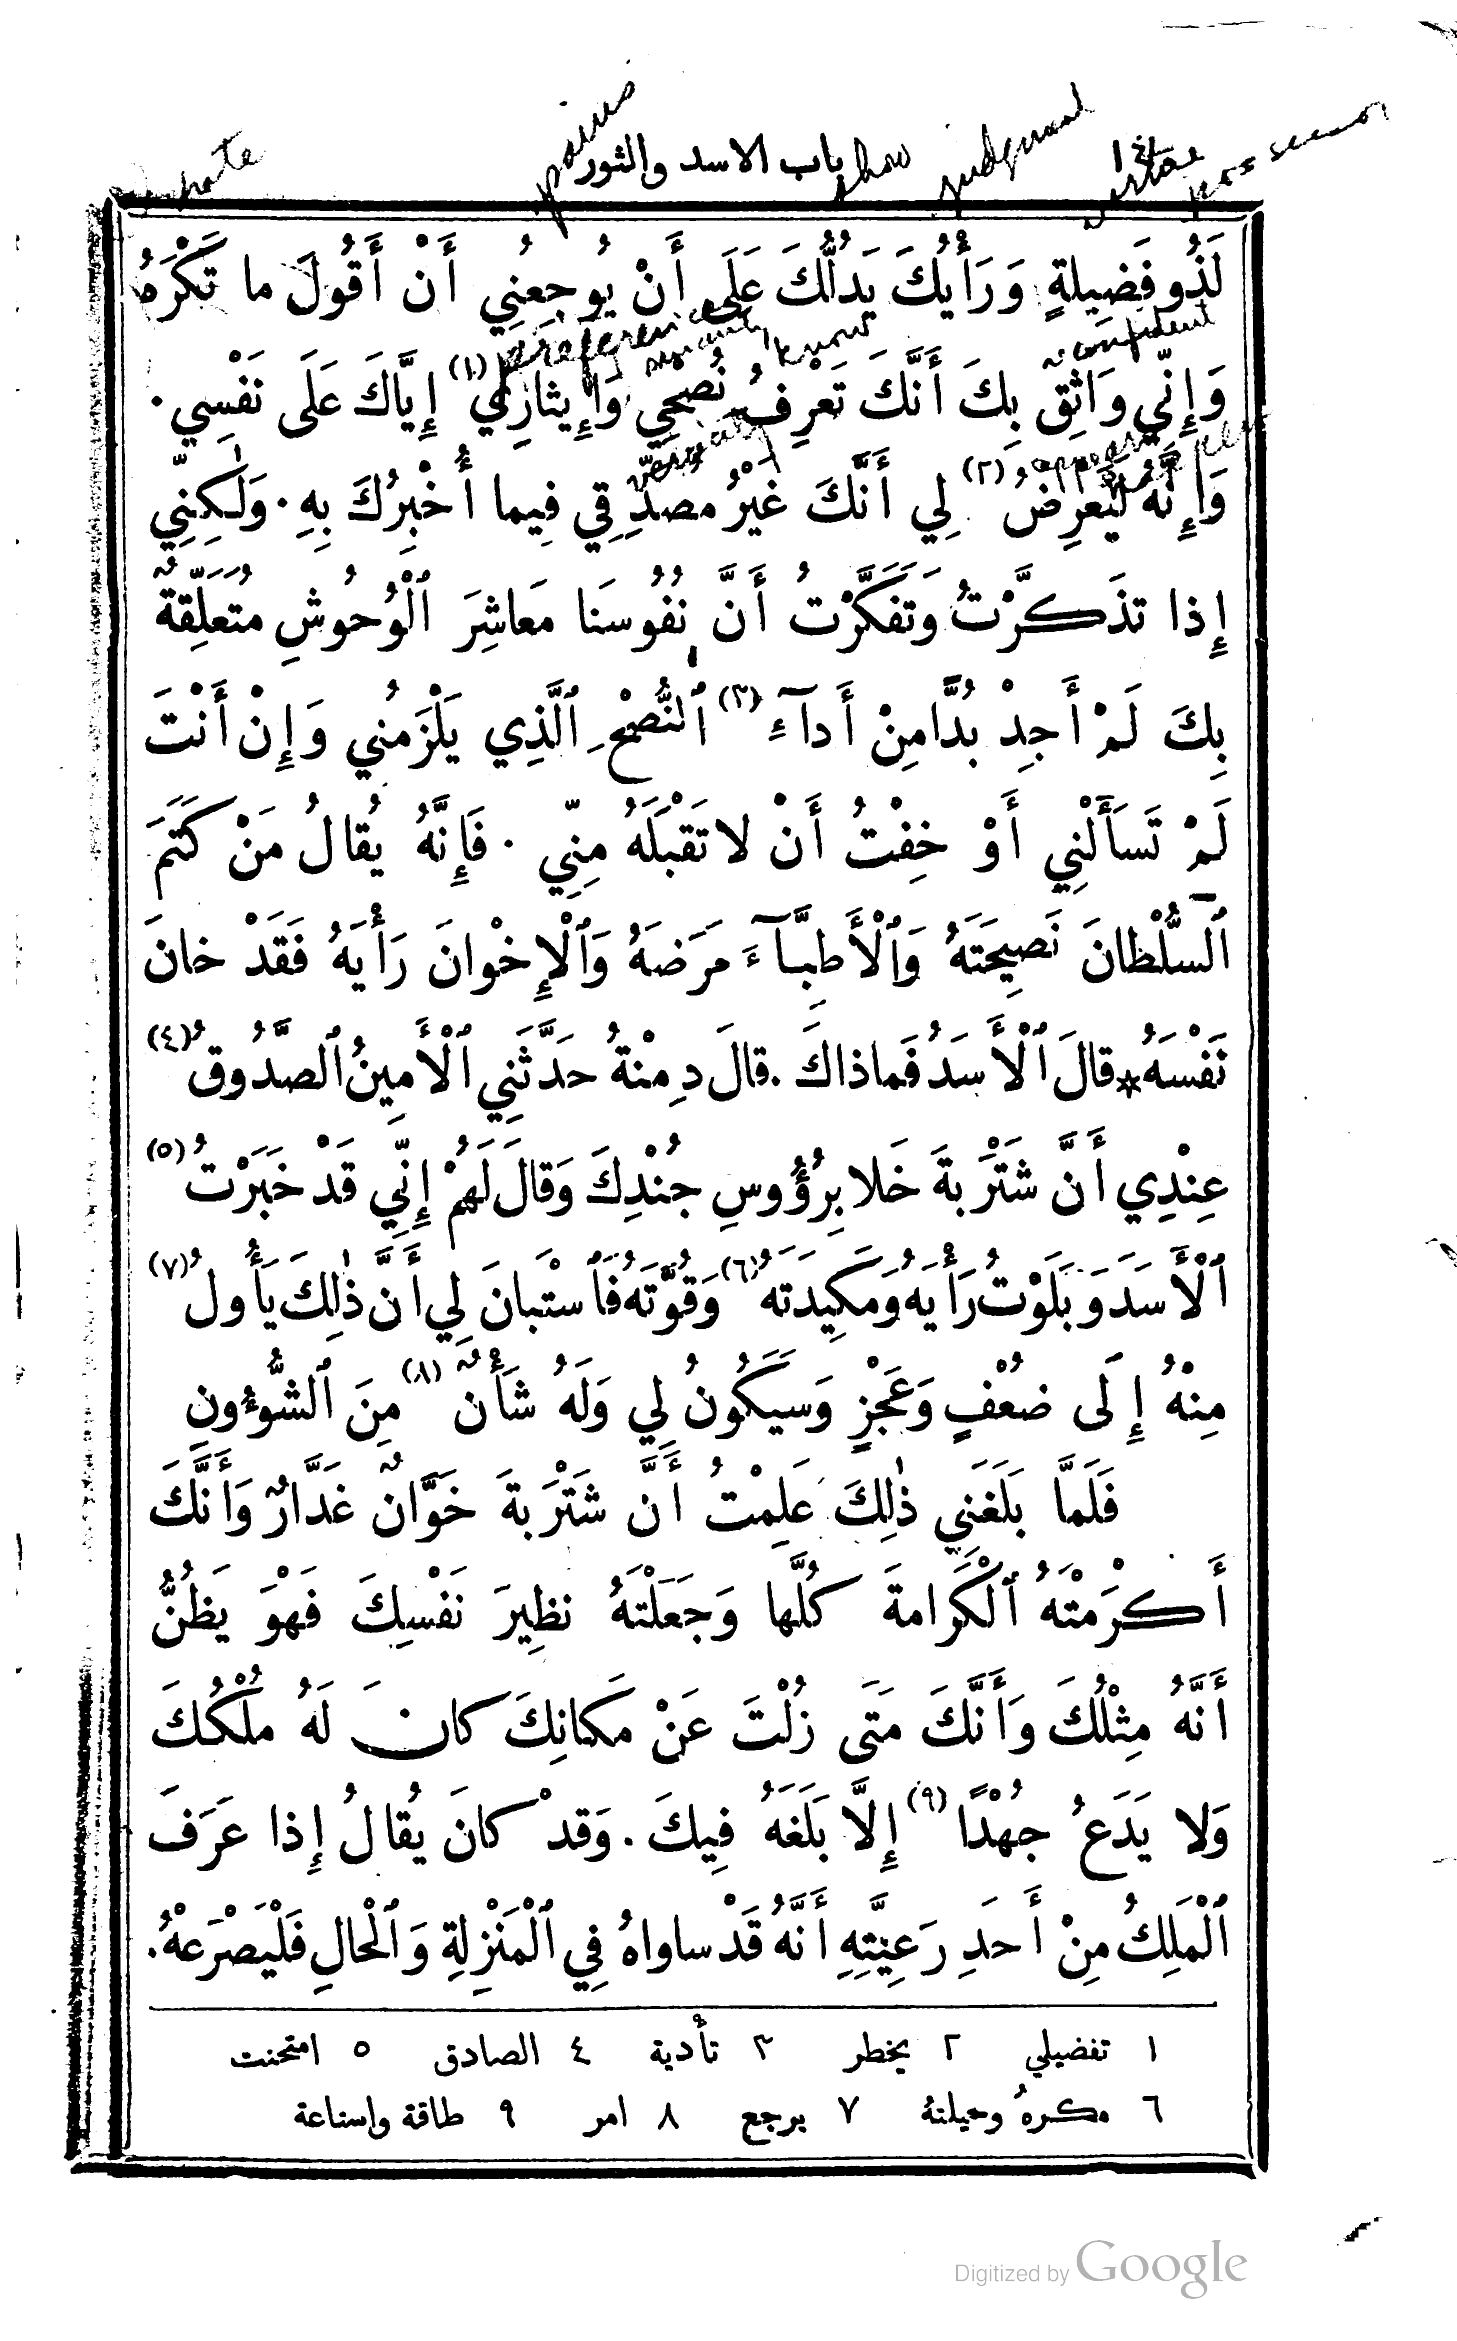 باب الاسد والثور
show
judgment
hate
لَذُو فَضِيلةٍ وَرَأْيُكَ يَدُلُّكَ عَلَى أَنْ يُوجِعُنِي أَنْ أَقُولَ ما تَكْرَهُ
confident
know
وَإِنِّي وَاثِقٌ بِكَ أَنَّكَ تَعْرِفُ نُصْحِي وَإِيثارِي (١) إِيَّاكَ عَلَى نَفْسِي.
وَإِنَّهُ لَيَعْرِضُ (٢) لِي أَنَّكَ غَيْرُ مُصَدِّقِي فِيما أُخْبِرُكَ بِهِ. وَلٰكِنِّي
إِذا تذَكَّرْتُ وَتَفَكَّرْتُ أَنَّ نُفُوسَنا مَعاشِرَ ٱلْوُحُوشِ مُتَعَلِّقةٌ
بِكَ لَمْ أَجِدْ بُدًّا مِنْ أَدآءِ (٣) ٱلنُّصْحِ ٱلَّذِي يَلْزَمُنِي وَإِنْ أَنْتَ
لَمْ تَسأَلْنِي أَوْ خِفْتُ أَنْ لا تَقْبَلَهُ مِنِّي. فَإِنَّهُ يُقالُ مَنْ كَتَمَ
ٱلسُّلْطانَ نَصِيحَتَهُ وَٱلْأَطِبَّآءَ مَرَضَهُ وَٱلْإِخْوانَ رَأْيَهُ فَقَدْ خانَ
نَفْسَهُ * قالَ ٱلْأَسَدُ فَماذاكَ. قالَ دِمْنةُ حَدَّثَنِي ٱلْأَمِينُ ٱلصَّدُوقُ (٤)
عِنْدِي أَنَّ شَتْرَبةَ خَلا بِرُؤُوسِ جُنْدِكَ وَقالَ لَهُمْ إِنِّي قَدْ خَبَرْتُ (٥)
ٱلْأَسَدَ وَبَلَوْتُ رَأْيَهُ وَمَكِيدَتَهُ (٦) وَقُوَّتَهُ فَٱسْتَبانَ لِي أَنَّ ذٰلِكَ يَأُولُ (٧)
مِنْهُ إِلَى ضُعْفٍ وَعَجْزٍ وَسَيَكُونُ لِي وَلَهُ شَأْنٌ (٨) مِنَ ٱلشُّؤُونِ
فَلَمَّا بَلَغَنِي ذٰلِكَ عَلِمْتُ أَنَّ شَتْرَبةَ خَوَّانٌ غَدَّارٌ وَأَنَّكَ
أَكْرَمْتَهُ ٱلْكَرامةَ كُلَّها وَجَعَلْتَهُ نظِيرَ نَفْسِكَ فَهْوَ يَظُنُّ
أَنَّهُ مِثْلُكَ وَأَنَّكَ مَتَى زُلْتَ عَنْ مَكانِكَ كانَ لَهُ مُلْكُكَ
وَلا يَدَعُ جُهْدًا (٩) إِلَّا بَلَغَهُ فِيكَ. وَقَدْ كانَ يُقالُ إِذا عَرَفَ
ٱلْمَلِكُ مِنْ أَحَدِ رَعِيَّتِهِ أَنَّهُ قَدْ ساواهُ فِي ٱلْمَنْزِلةِ وَٱلْحالِ فَلْيَصْرَعْهُ.
١ تفضيلي ٢ يخطر ٣ تأدية ٤ الصادق ٥ امتحنت
٦ مكرهُ وحيلتهُ ٧ يرجع ٨ امر ٩ طاقة واستاعة
Digitized by Google